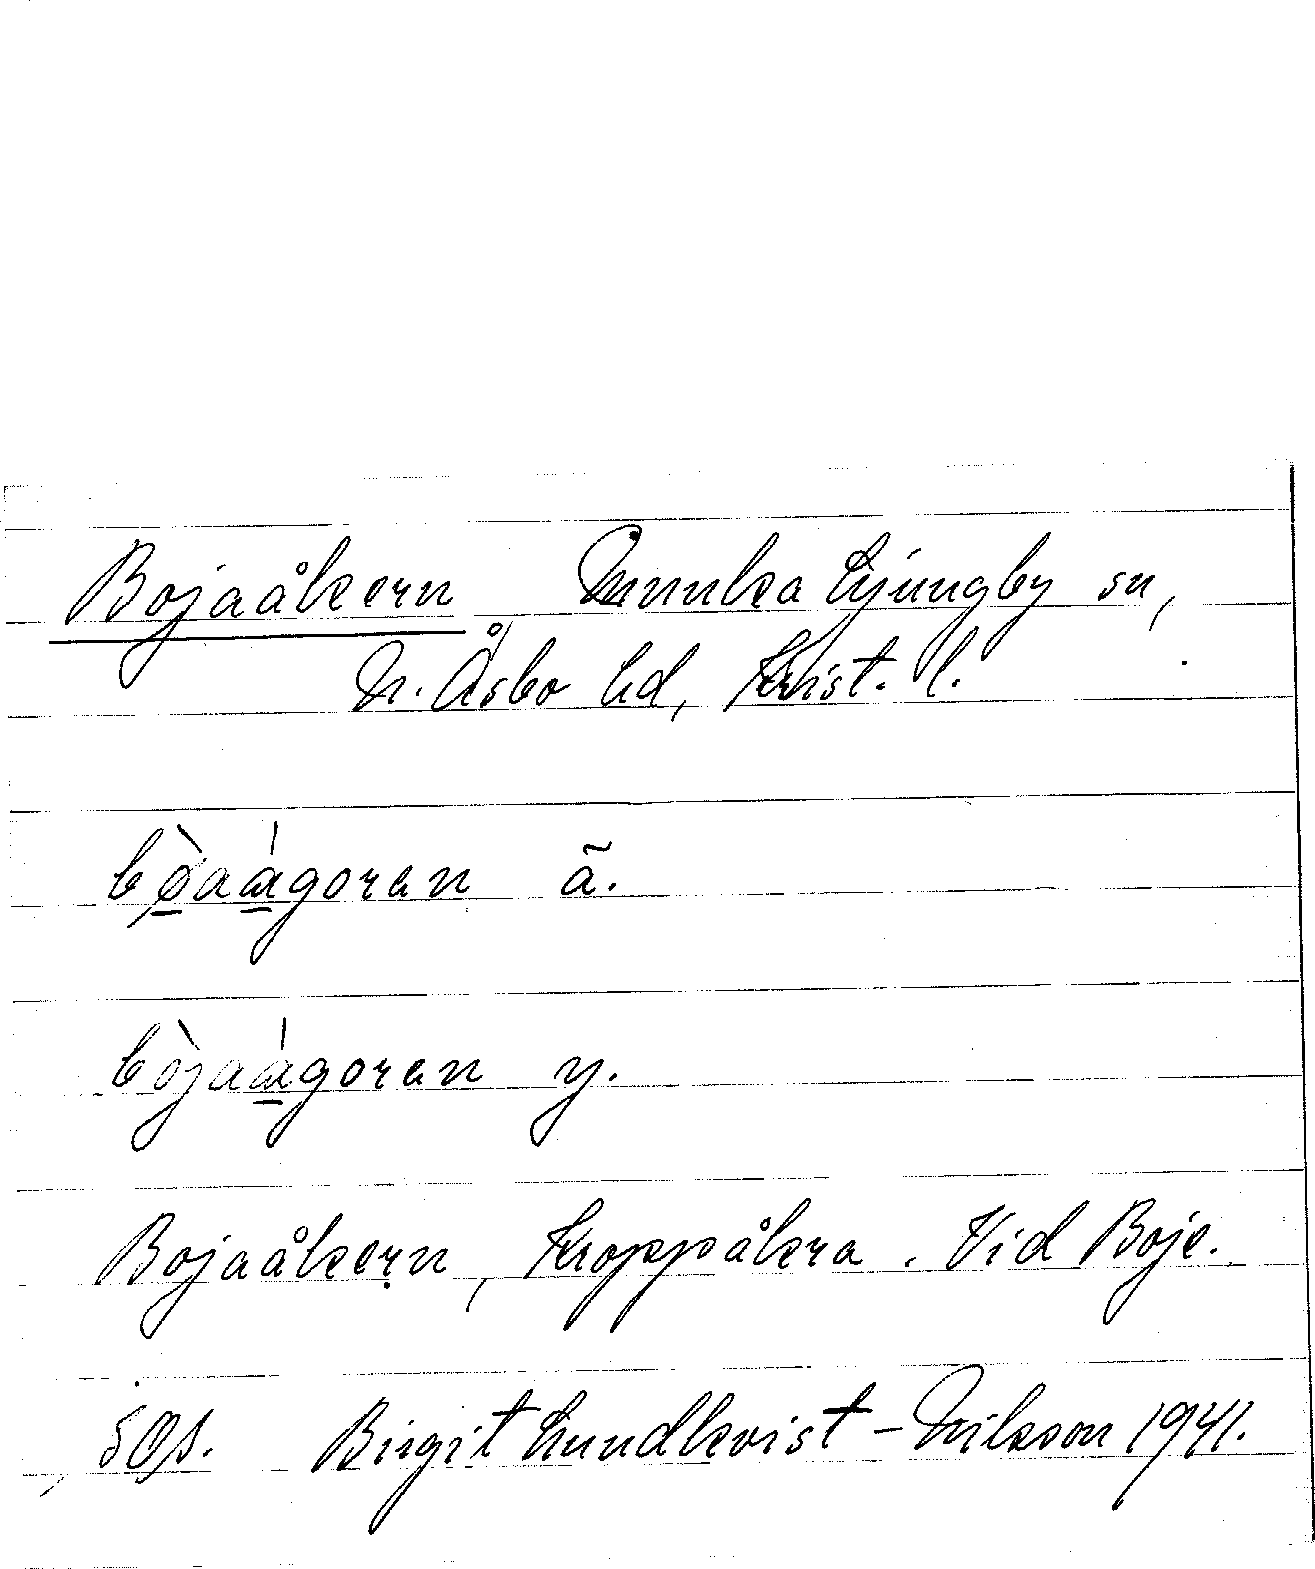 Bojaåkern Munka Ljungby sn,
N. Åsbo hd, Krist. l.
bò̱aá̱goran ã.
bòjaá̱goran y.
Bojaåkern, Kroppåkra. Vid Boje.
Birgit Lundkvist-Nilsson 1941.